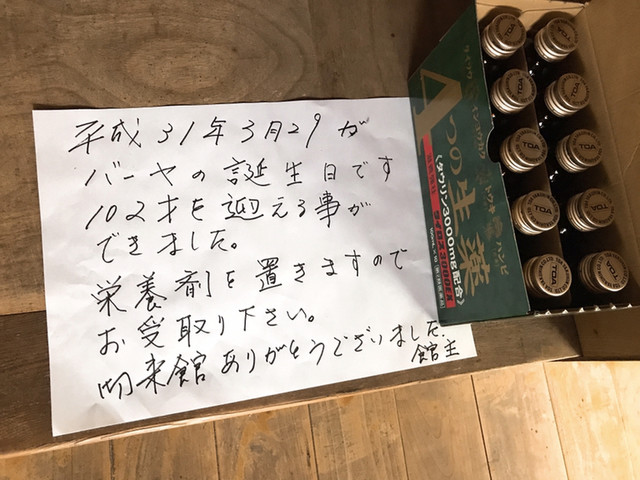 平成31年3月29が
バーヤの誕生日です
102才を迎える事が
できました。
栄養剤を置きますので
お受取り下さい。
来館ありがとうございました.
館主
4つの生薬
〈タウリン3000mg配合〉
TOA
TOA
TOA
TOA
TOA
TOA
TOA
TOA
TOA
TOA